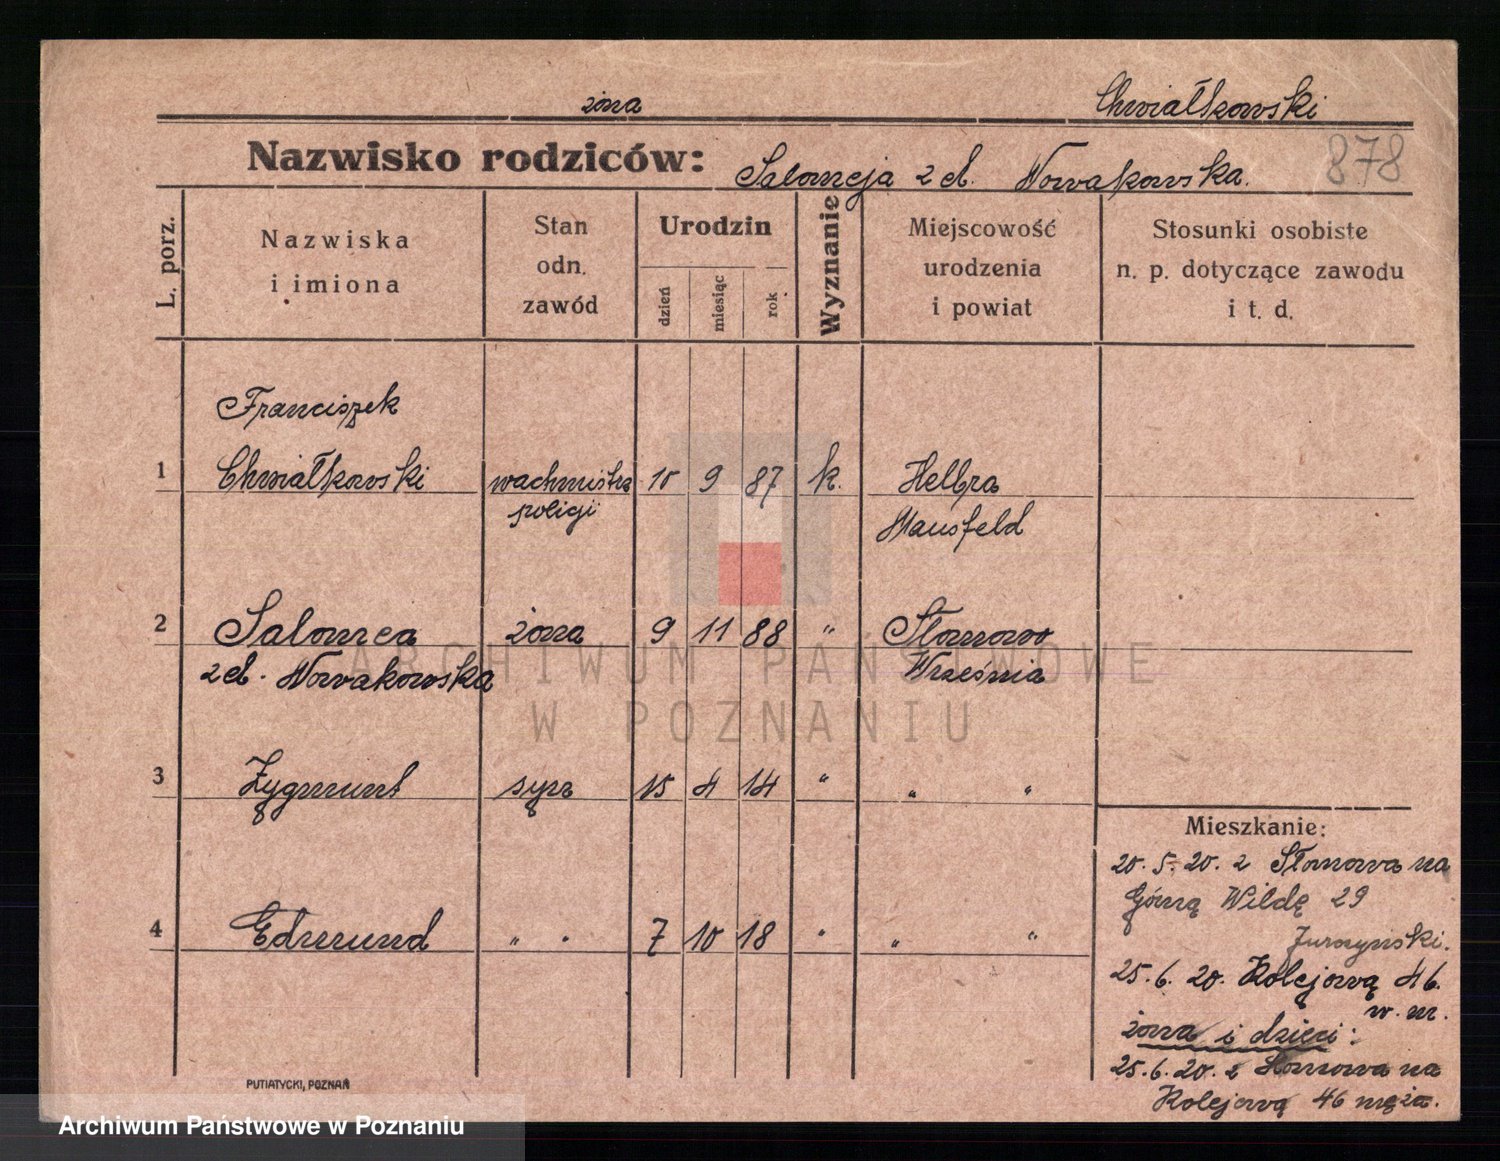 żona Chwiałkowski
Nazwisko rodziców: Salomeja z d. Nowakowska. 878
L. porz. Nazwiska i imiona Stan odn. zawód Urodzin dzień miesiąc rok Wyznanie Miejscowość urodzenia i powiat Stosunki osobiste n. p. dotyczące zawodu i t. d.
Franciszek
1 Chwiałkowski wachmistrz 10 9 87 k. Helbra
policji Mansfeld
2 Salomea żona 9 11 88 " Słomowo
z d. Nowakowska Września
ARCHIWUM PAŃSTWOWE
W POZNANIU
3 Zygmunt syn 15 4 14 " " "
Mieszkanie:
20. 5. 20. z Słomowa na
Górną Wildę 29
4 Edmund " " 7 10 18 " " "
25. 6. 20. Kolejową 46.
w. m.
żona i dzieci:
25. 6. 20. z Słomowa na
Kolejową 46 męża.
PUTIATYCKI, POZNAŃ
Archiwum Państwowe w Poznaniu